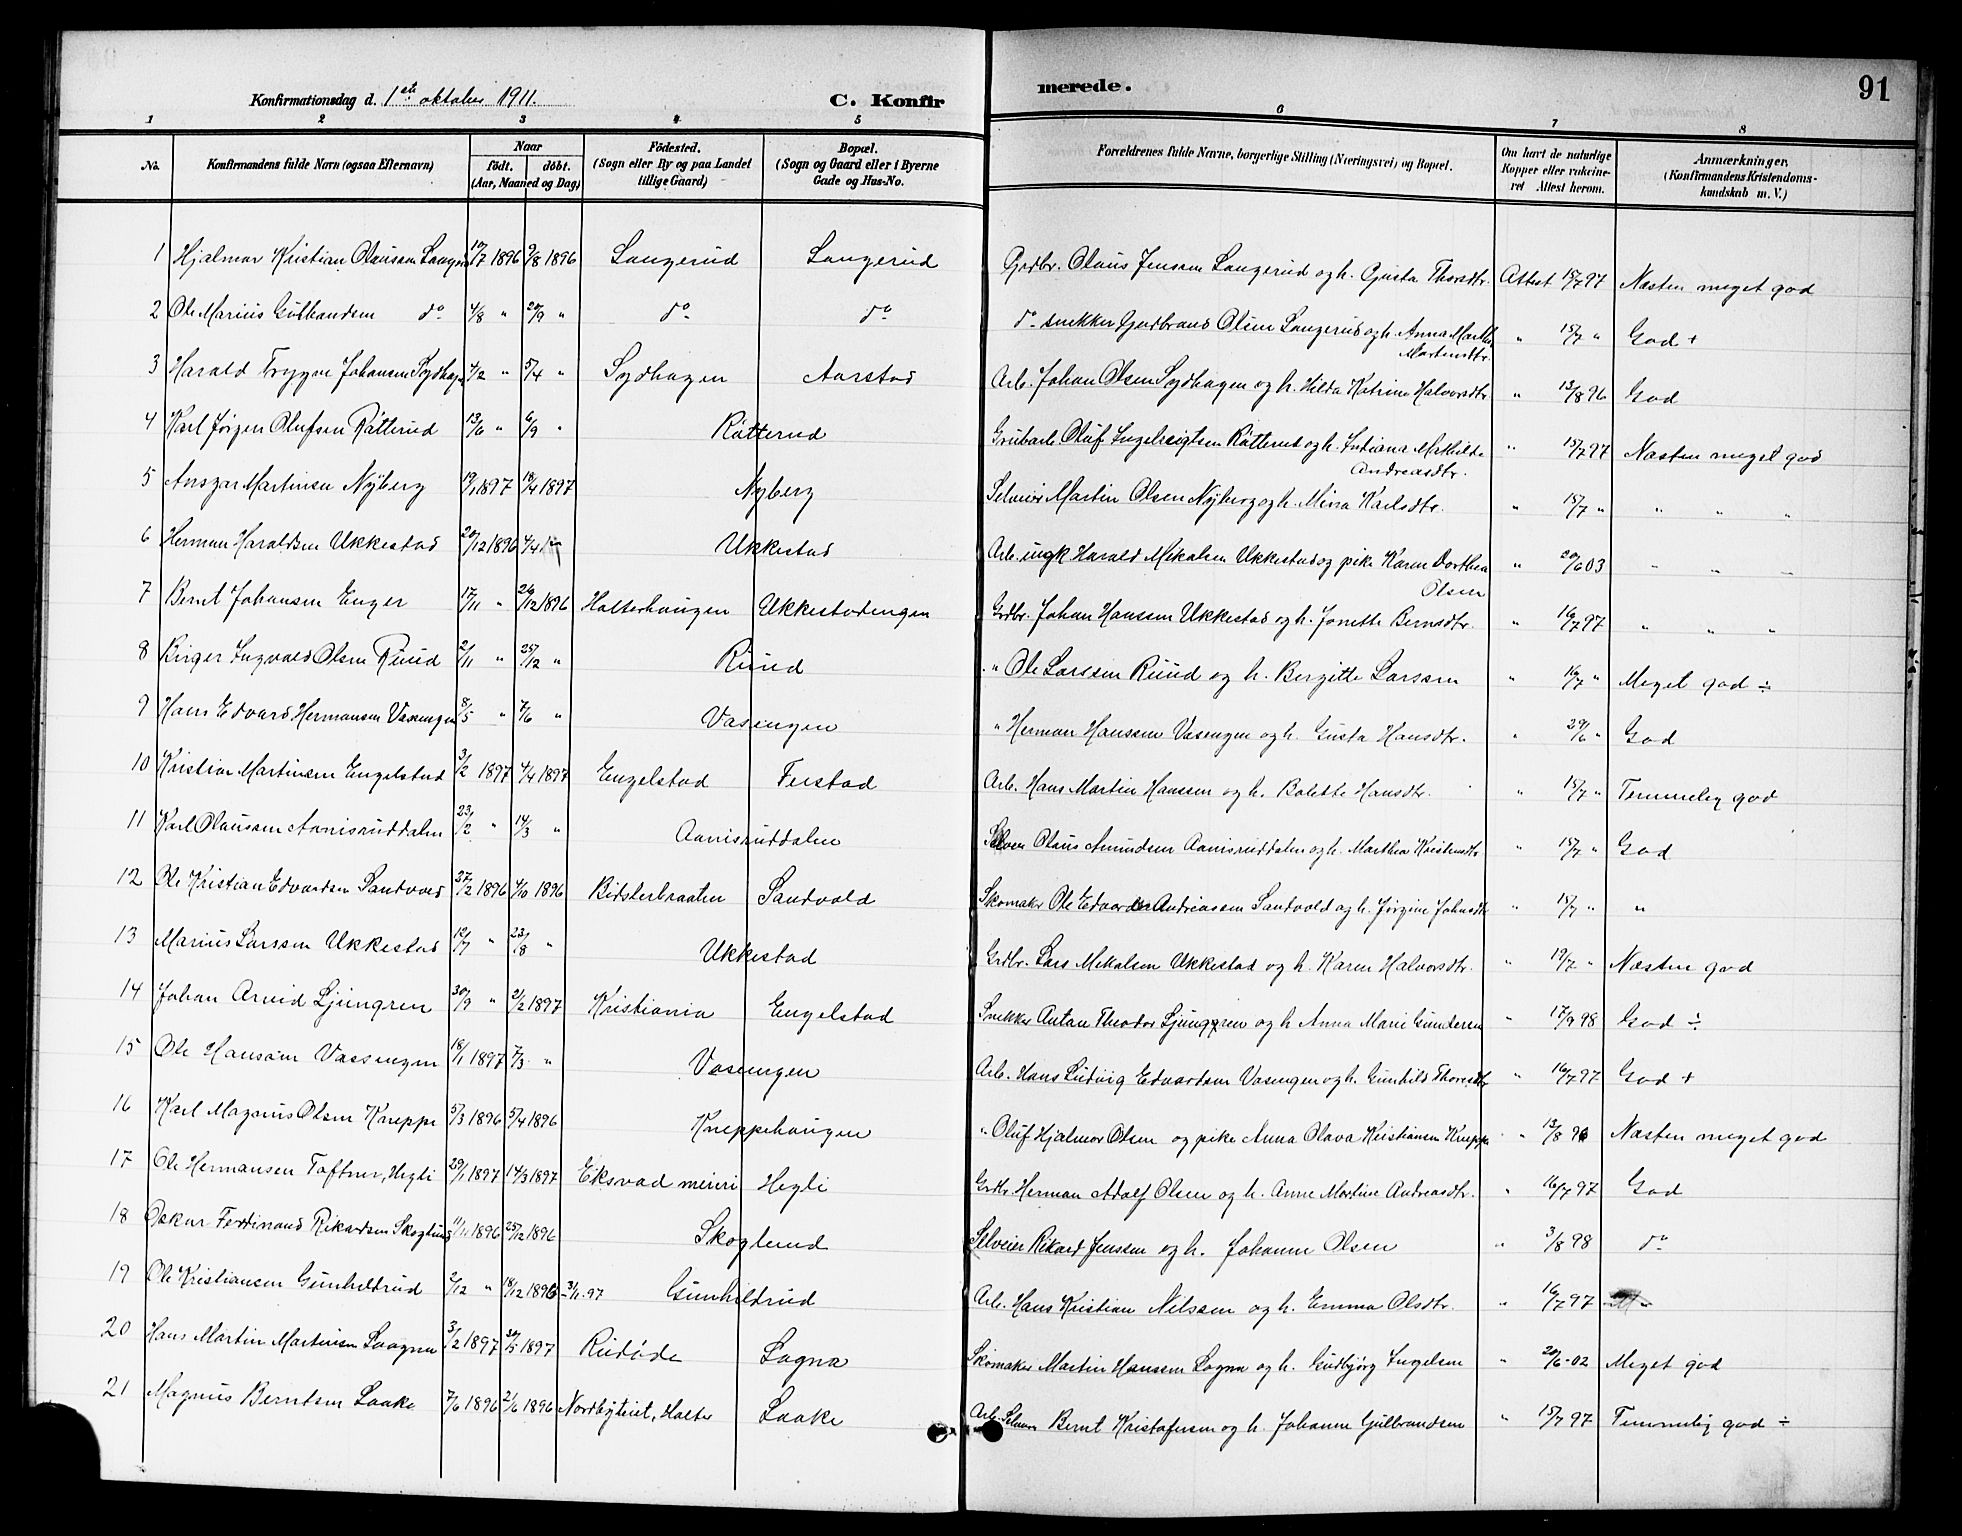 91
Konfirmationsdag d. 1ste oktober 1911. C. Konfirmerede.
1 2 3 4 5 6 7 8
No. Konfirmandens fulde Navn (ogsaa Efternavn) Naar født. døbt. (Aar, Maaned og Dag) Fødested. (Sogn eller By og paa Landet tillige Gaard) Bopæl. (Sogn og Gaard eller i Byerne Gade og Hus-No. Forældrenes fulde Navne, borgerlige Stilling (Næringsvei) og Bopæl. Om havt de naturlige Kopper eller vakcineret Attest herom. Anmærkninger. (Konfirmandens Kristendomskundskab m. V.)
1 Hjalmar Kristian Olausen 10/7 1896 9/8 1896 Langerud Langerud Grdbr. Olaus Jensen Langerud og h. Gusta Thorsdtr. Attest 15/7 97 Næsten meget god
2 Ole Marius do 4/8 " 20/9 " do do do snekker Gudbrand Olsen Langerud og h. Anna Marthe Martinsdtr. " 15/7 " God +
3 Harald Trygve Johansen Sydhagen 4/2 " 5/4 " Sydhagen Aarstad Arb. Johan Olsen Sydhagen og h. Hilda Katrine Halvorsdtr. " 13/8 96 God
4 Karl Jørgen Olufsen Råtterud 13/6 " 6/9 " Råtterud Grubearb. Oluf Råtterud og h. Mathilde Andreasdtr. " 15/7 97 Næsten meget god
5 Ansgar Martinsen Nyberg 19/1 1897 18/4 1897 Nyberg Selveier Martin Olsen Nyberg og h. Mina Karlsdtr. " 15/7 " " " "
6 Herman Haraldsen Ukkestad 20/12 1896 4/4 Ukkestad Arb. ungk Harald Mikalsen Ukkestad og pike Karen Dorthea Olsen " 20/6 03 " " "
7 Bernt Johansen Enger 17/11 " 26/12 1896 Holterhaugen Ukkestadengen Grdbr. Johan Hanssen Ukkestad og h. Jonette Berntsdtr. " 16/7 97 " " "
8 Birger Ingvald Olsen Ruud 2/11 " 25/12 " Ruud " Ole Larssen Ruud og h. Bergitte Larssen " 16/7 " Meget god ÷
9 Hans Edvard Hermansen Vasengen 8/5 " 7/6 " Vasengen " Herman Hanssen Vasengen og h. Gusta Hansdtr. " 29/6 " God
10 Kristian Martinsen Engelstad 3/2 1897 4/4 1897 Engelstad Feistad Arb. Hans Martin Hanssen og h. Bolette Hansdtr. " 15/7 " Temmelig god
11 Karl Olausen Aanisruddalen 23/2 " 14/3 " Aanisruddalen Selveier Olaus Amundsen Aanisruddalen og h. Marthea Kristensdtr " 15/7 " God
12 Ole Kristian Edvardsen Sandvold 27/2 1896 4/10 1896 Sandvold Skomaker Ole Edvard Andreassen Sandvold og h. Jørgine Johnsdtr " 15/7 " "
13 Marius Larssen Ukkestad 12/7 " 23/8 " Ukkestad Grdbr. Lars Mikalsen Ukkestad og h. Karen Halvorsdtr. " 19/7 " Næsten god
14 Johan Arvid Ljungren 30/9 " 2/2 1897 Kristiania Engelstad Snekker Anton Theodor Ljunggren og h Anna Marie Gundersen " 17/9 98 God ÷
15 Ole Hanssen Vassengen 18/1 1897 7/3 " Vasengen Arb. Hans Ludvig Edvardsen Vasengen og h. Gunhild Thoresdtr " 16/7 97 God +
16 Karl Magnus Olsen Kneppe 5/3 1896 5/4 1896 Kneppehaugen " Oluf Hjalmar Olsen og pike Anna Olava Kristiansen Kneppe " 13/8 96 Næsten meget god
17 Ole Hermansen Toftner, Hegli 29/1 1897 14/3 1897 Eksvad meieri Hegli Grdbr Herman Adolf Olsen og h. Anne Martine Andreasdtr. " 16/7 97 God
18 Oskar Ferdinand Rikardsen Skoglund 11/11 1896 25/12 1896 Skoglund Selveier Rikard Jenssen og h. Johanne Olsen " 3/8 98 do
19 Ole Kristiansen Gunhildrud 2/12 " 18/12 1896 - 31/1 97 Gunhildrud Arb. Hans Kristian Nilssen og h. Emma Olsdtr. " 16/7 97
20 Hans Martin Martinsen Laagna 3/2 1897 30/5 1897 Rudøde Lagna Skomaker Martin Hanssen Lagna og h. Gudbjørg Ingelsen " 20/6 - 02 Meget god
21 Magnus Berntsen Laake 7/6 1896 21/6 1896 Nordbyteiet, Holter Laake Arb. Bernt Kristofersen og h. Johanne Gulbrandsen " 15/7 97 Temmelig god ÷